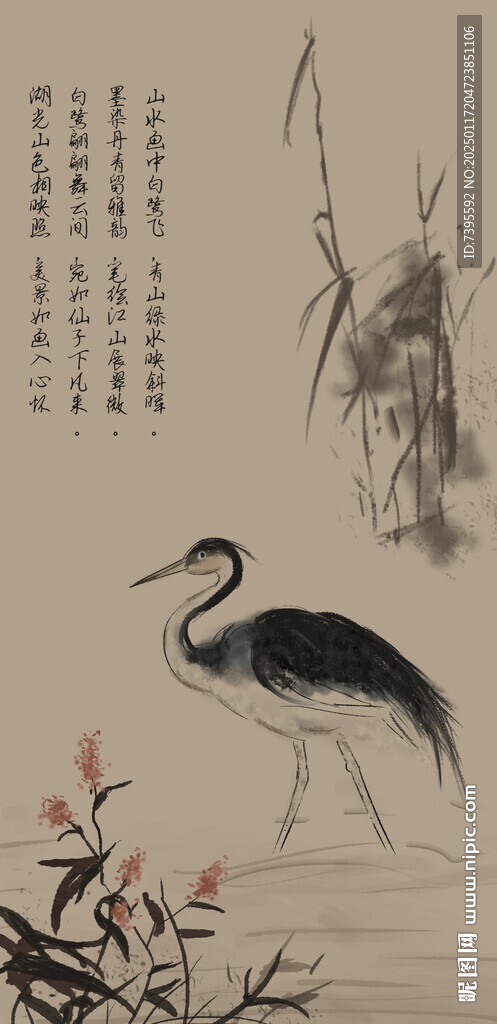 山水画中白鹭飞 青山绿水映斜晖。
墨染丹青留雅韵 笔绘江山展翠微。
白鹭翩翩舞云间 宛如仙子下凡来。
湖光山色相映照 美景如画入心怀
ID:7395592 NO:20250117204723851106
昵图网 www.nipic.com